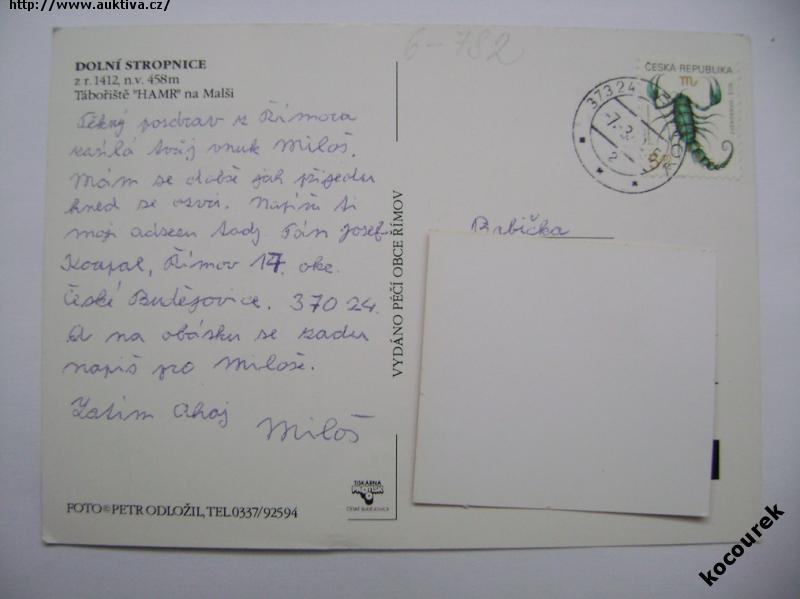 http://www.auktiva.cz/
6-782
DOLNÍ STROPNICE
z r. 1412, n.v. 458m
Tábořiště "HAMR" na Malši
Pěkný pozdrav z Římova
zasílá tvůj vnuk Miloš.
Mám se dobře jak přijedu
hned se ozvu. Napíšu ti
moji adresu tady Pán Josef
Koupal, Římov 17. okr.
České Budějovice. 370 24.
A na obásku se zadu
napiš pro Miloše.
Zatim Ahoj
Miloš
FOTO © PETR ODLOŽIL, TEL.0337/92594
TISKÁRNA
ČESKÉ BUDĚJOVICE
VYDÁNO PÉČÍ OBCE ŘÍMOV
ČESKÁ REPUBLIKA
373 24
-7.
2
Babička
kocourek